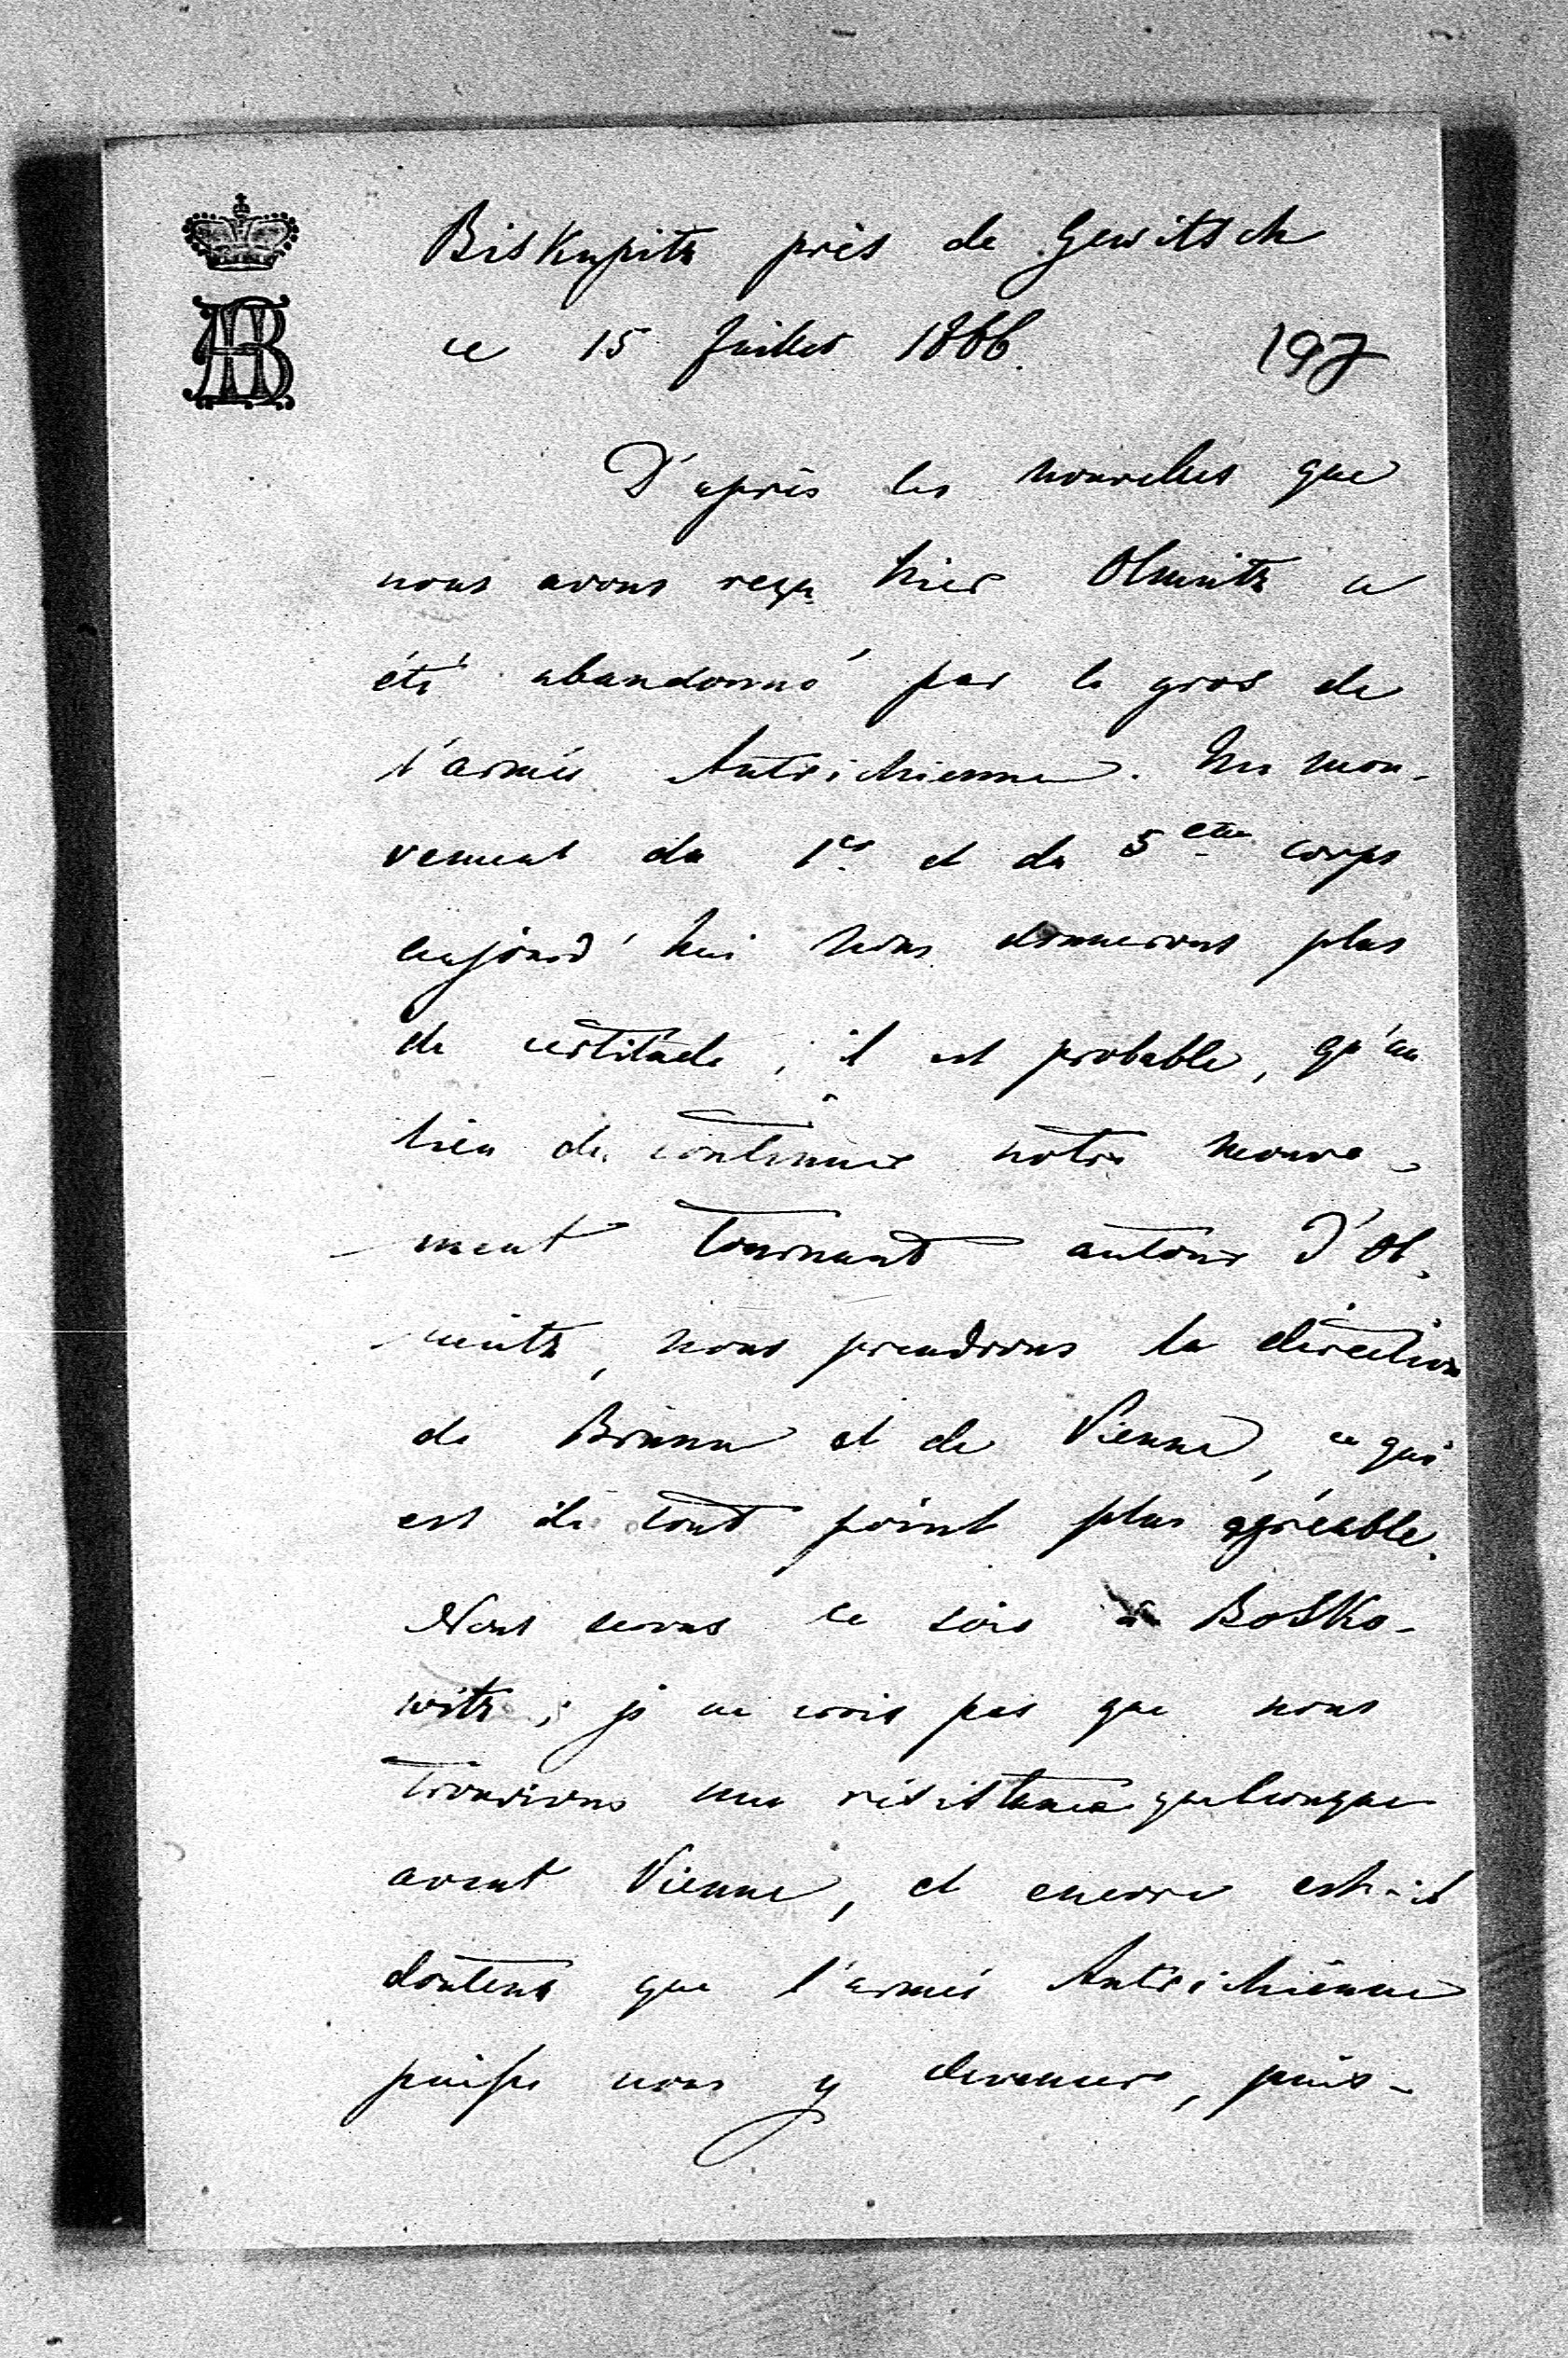 BisKupitz près de Gewitsch
ce 15 Juillet 1866.
197
D'après les nouvelles que
nous avons reçu hier Olmütz a
été abandonné par le gros de
l'armée Autrichienne. Un mou-
vement du 1er et du 5ème corps
aujourd'hui nous donnerons plus
de certitude; il est probable, qu'au
lieu de continuer notre mouve-
ment tournant autour d'Ol-
mütz, nous prendrons la direction
de Brünn et de Vienne, ce qui
est de tout point plus agréable.
Nous serons ce soir à BosKo-
witz; je ne crois pas que nous
trouvions une résistance quelconque
avant Vienne, et encore est-il
douteux que l'armée Autrichienne
puisse nous y devancer, puis-